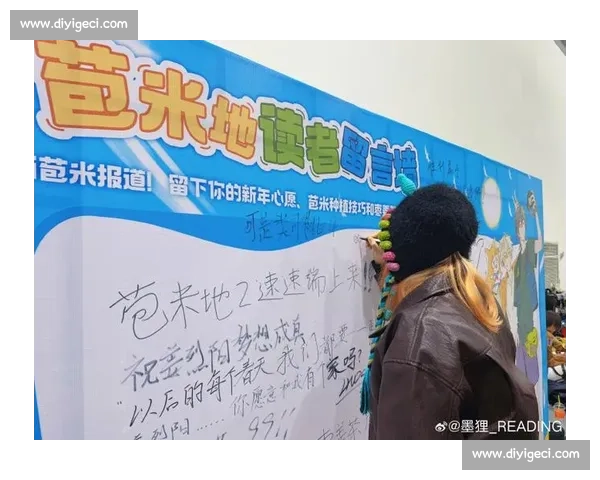 www.diyigeci.com
苞米地读者留言墙
苞米报道！留下你的新年心愿、苞米种植技巧和枣
苞米地2速速端上来!!
祝姜烈阳梦想成真
"以后的每个春天我们都要一
你愿意和我有个家吗?
烈阳……
99!!
@墨狸_READING
www.diyigeci.com